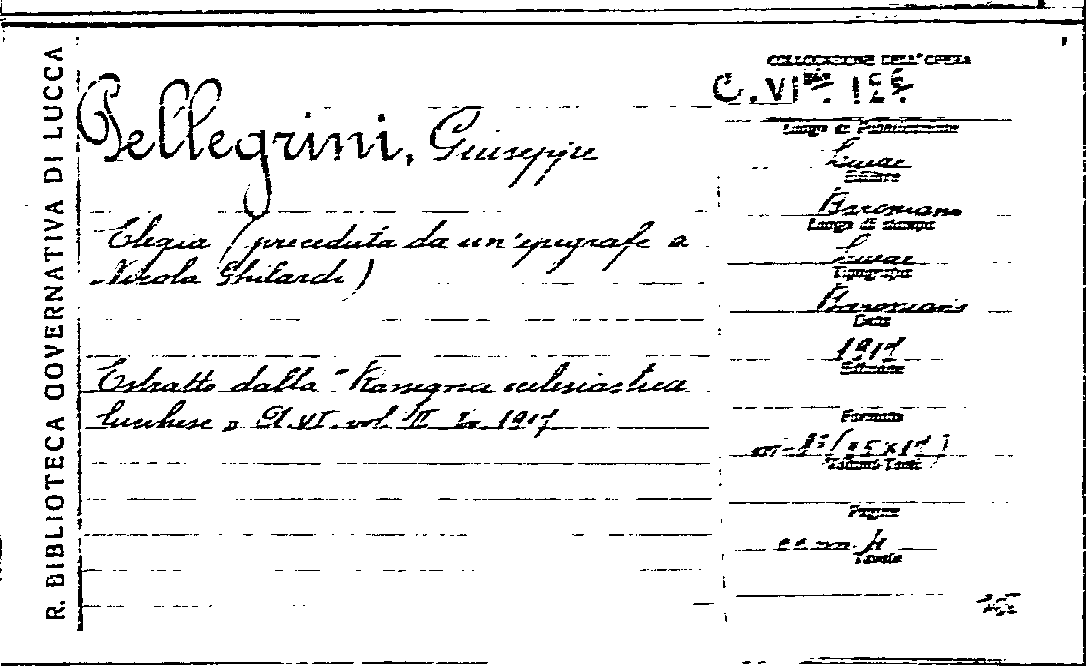 R. BIBLIOTECA GOVERNATIVA DI LUCCA
Pellegrini, Giuseppe
Elegia (preceduta da un'epigrafe a
Nicola Ghilardi)
Estratto dalla "Rassegna ecclesiastica
lucchese" A. VI. vol. II 1917
COLLOCAZIONE DELL'OPERA
C. VI
Luogo di Pubblicazione
Lucca
Editore
Baroniana
Luogo di stampa
Lucca
Tipografia
Baroniana
Data
1917
Edizione
Formato
in-8°
Pagine
Tavole